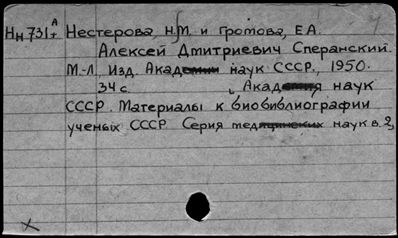 Нн 731+ А Нестерова, Н.М. и Громова, Е.А.
Алексей Дмитриевич Сперанский.
М.-Л., Изд. Академии наук СССР, 1950.
34 с. Академия наук
СССР. Материалы к биобиблиографии
ученых СССР. Серия медицинских наук в. 2,